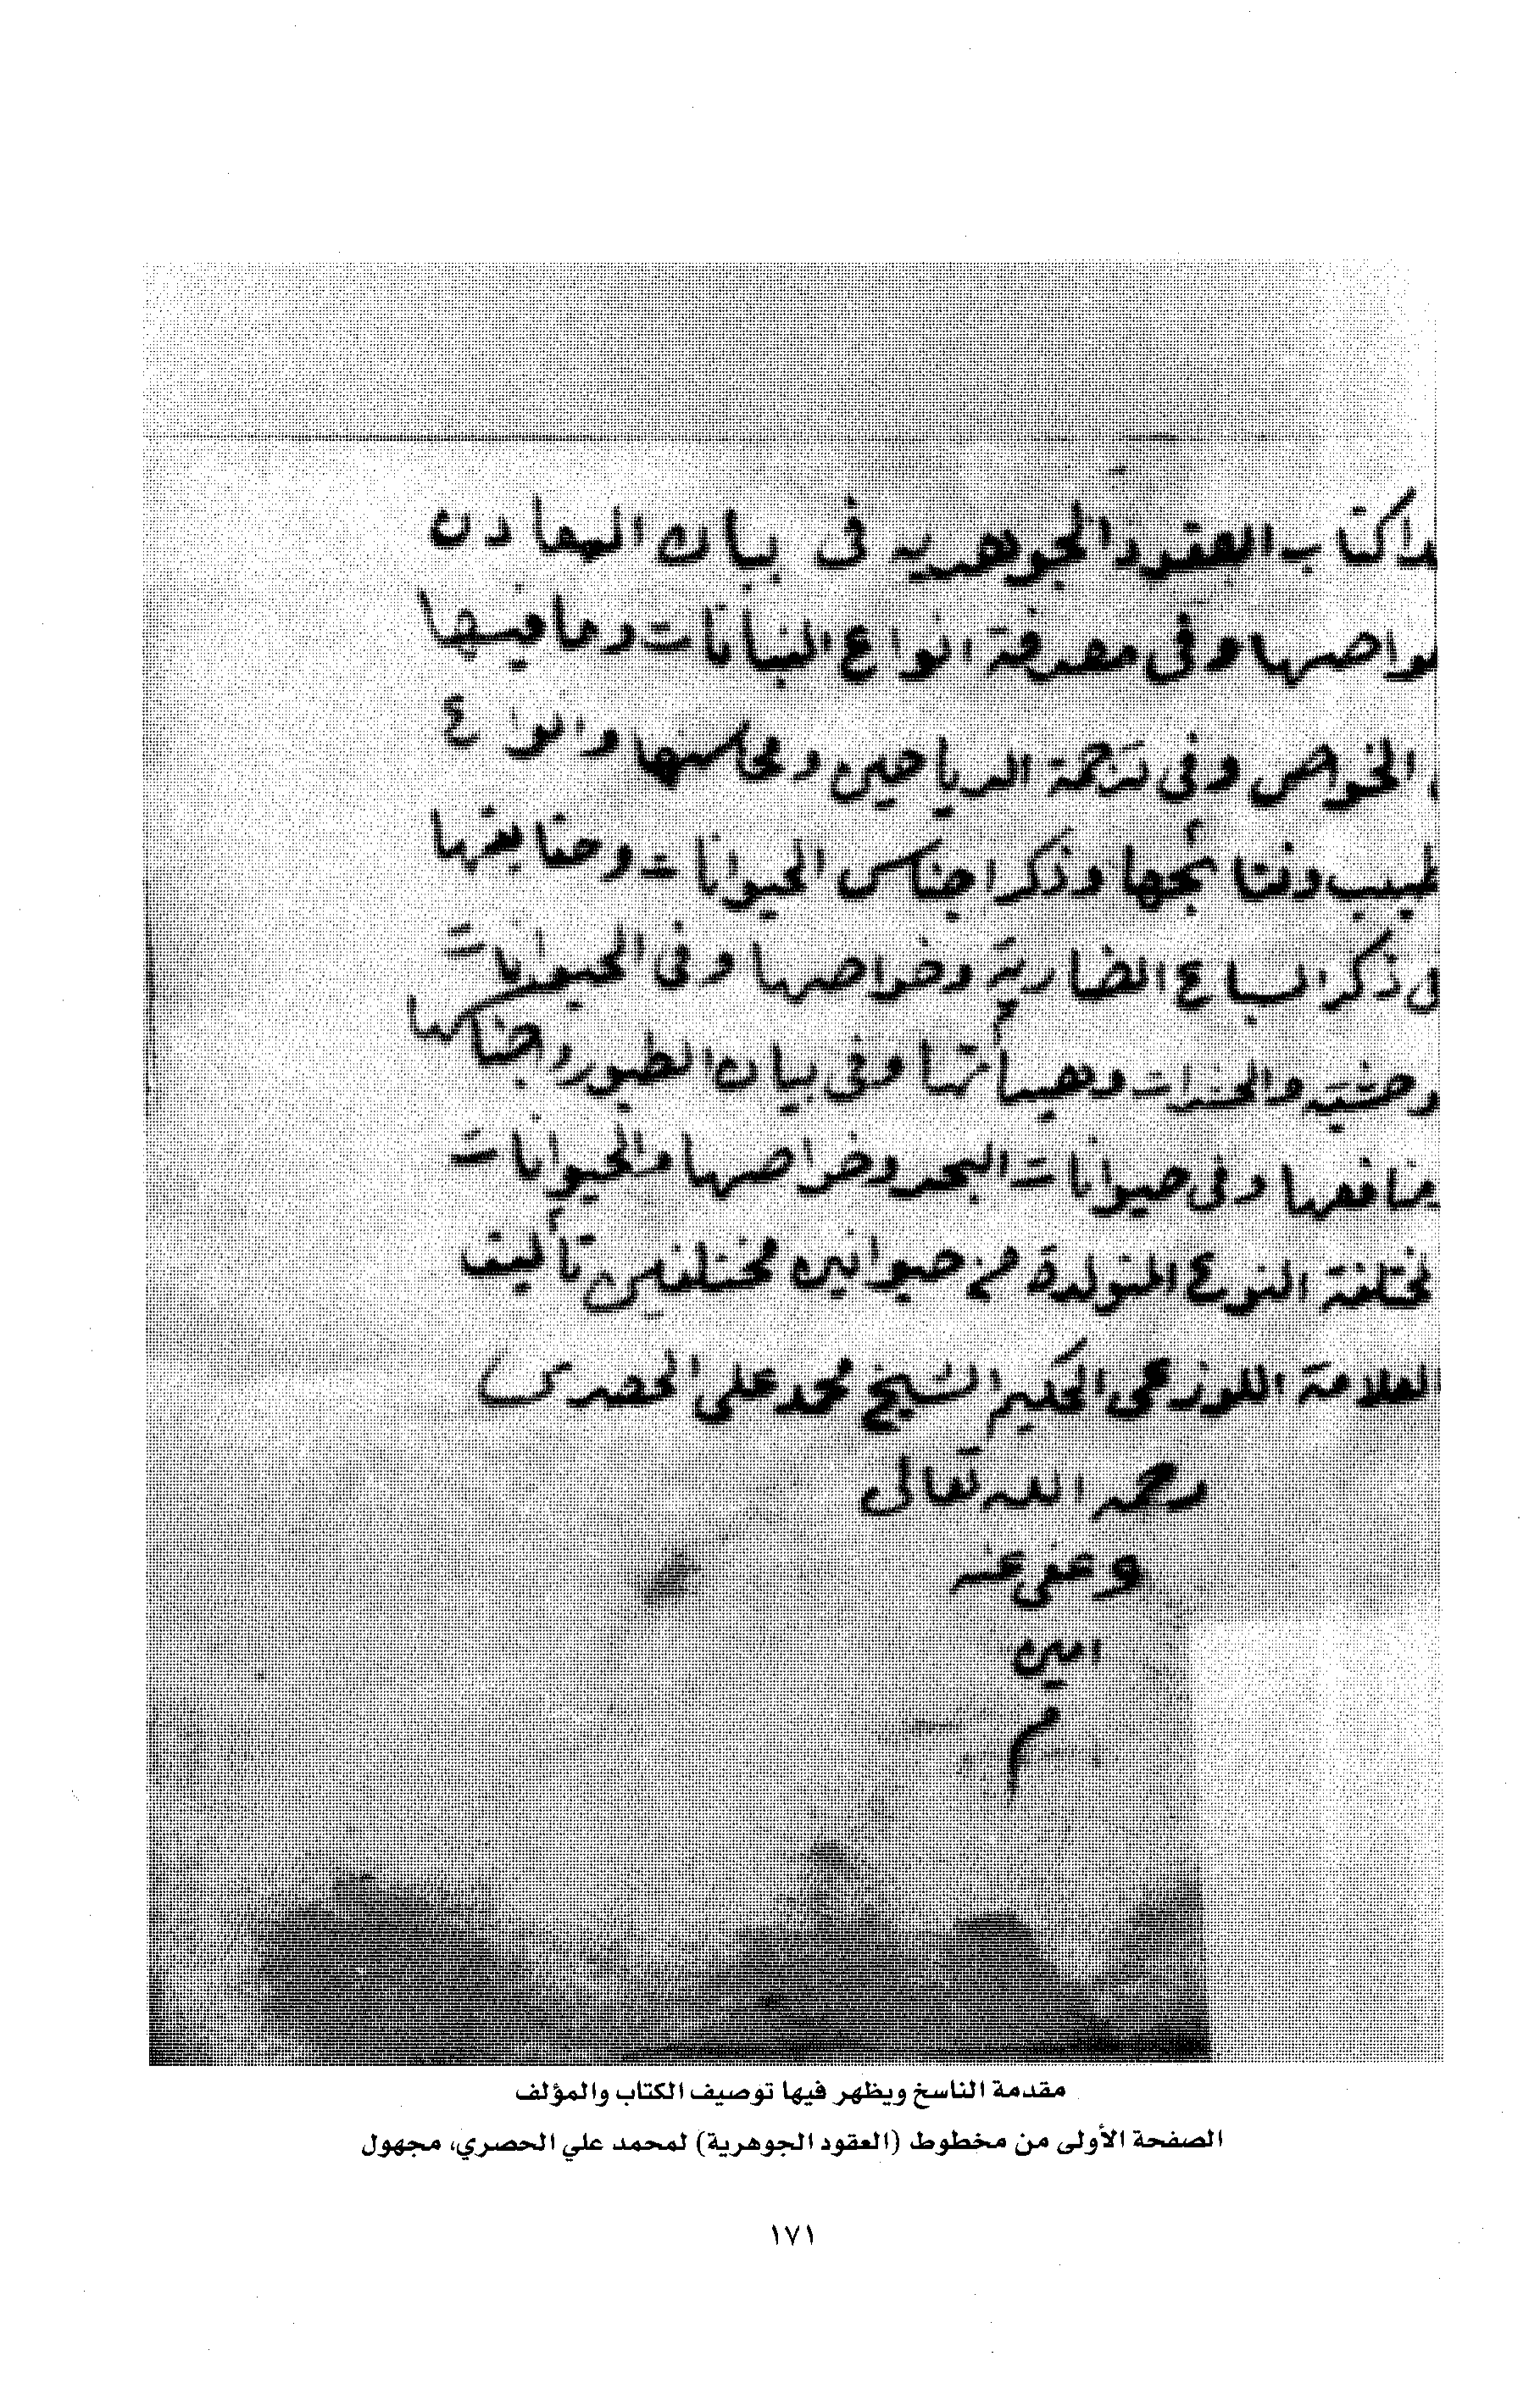 كتاب العقود الجوهريه في بيان المعادن
وفي معرفة انواع النباتات وما فيها
الخواص وفي ترجمة الرياحين ومحاسنها وانواع
ونتائجها وذكر اجناس الحيوانات ومنافعها
ذكر السباع الضارية وخواصها وفي الحيوانات
والحشرات وهيأتها وفي بيان الطيور واجناسها
منافعها وفي حيوانات البحر وخواصها والحيوانات
مختلفة النوع المتولدة من حيوانين مختلفين تأليف
العلامة اللوزعي الحكيم الشيخ محمد علي الحصري
رحمه الله تعالى
وعفى عنه
امين
م
مقدمة الناسخ ويظهر فيها توصيف الكتاب والمؤلف
الصفحة الأولى من مخطوط (العقود الجوهرية) لمحمد علي الحصري، مجهول
١٧١